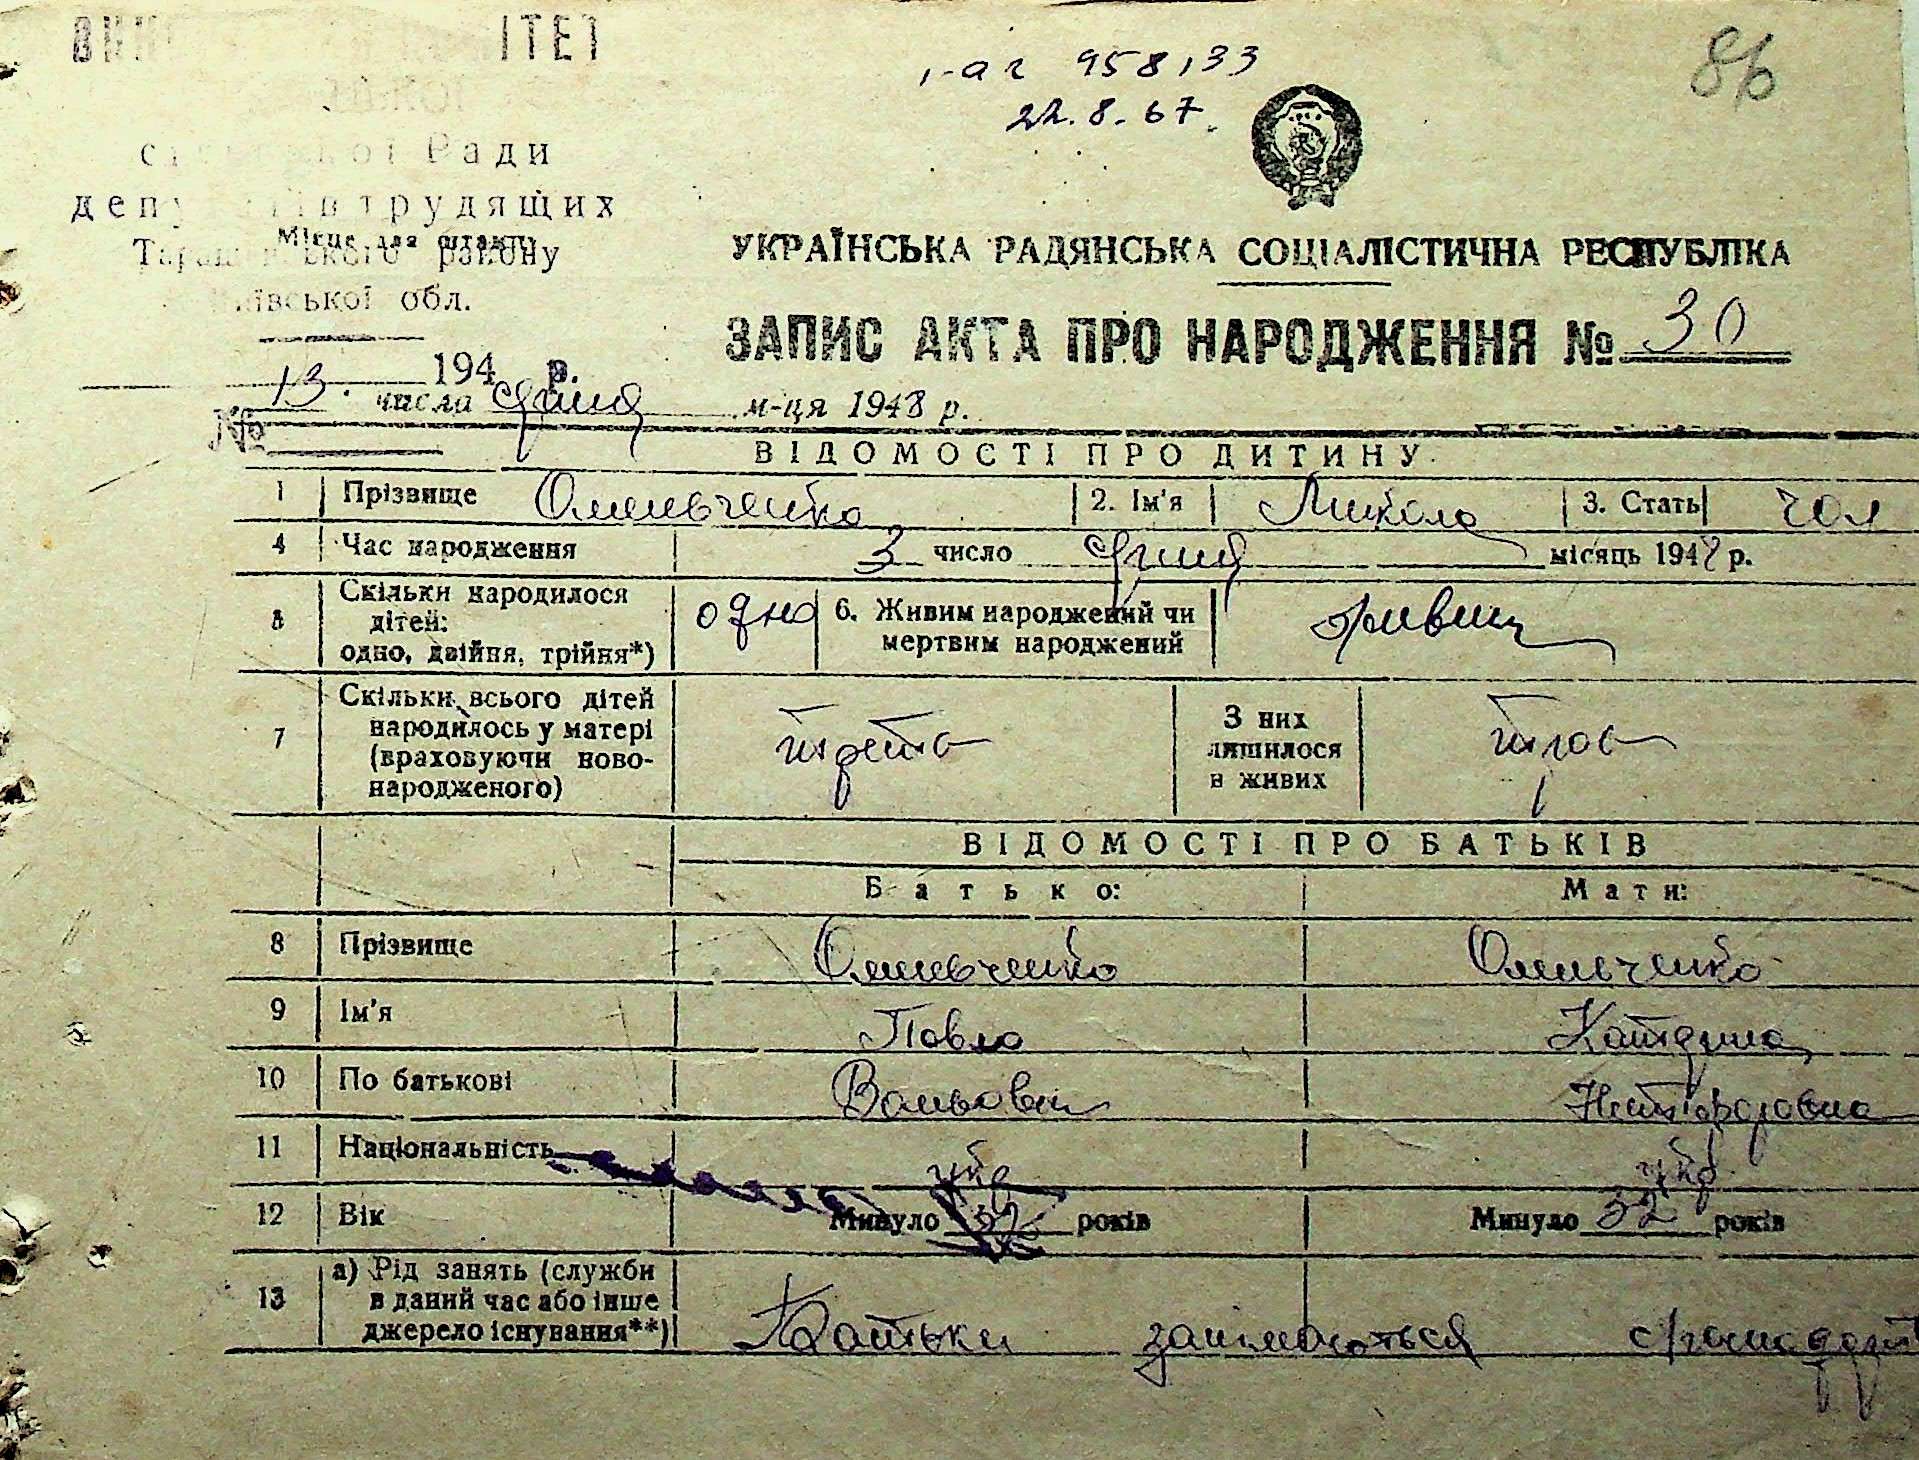 86
1-аг 958133
22.8.67.
Ради
трудящих
Місце для штампу
району
Київської обл.
УКРАЇНСЬКА РАДЯНСЬКА СОЦІАЛІСТИЧНА РЕСПУБЛІКА
ЗАПИС АКТА ПРО НАРОДЖЕННЯ № 30
194 р.
13 числа січня м-ця 1948 р.
№
ВІДОМОСТІ ПРО ДИТИНУ
1 Прізвище Омельченко 2. Ім'я Микола 3. Стать чол
4 Час народження 3 число січня місяць 1948 р.
5 Скільки народилося дітей: одно, двійня, трійня*) одно 6. Живим народжений чи мертвим народжений живим
7 Скільки всього дітей народилось у матері (враховуючи новонародженого) третє З них лишилося в живих троє
ВІДОМОСТІ ПРО БАТЬКІВ
Батько: Мати:
8 Прізвище Омельченко Омельченко
9 Ім'я Павло Катерина
10 По батькові Никифоровна
11 Національність укр укр
12 Вік Минуло 32 років Минуло 32 років
13 а) Рід занять (служби в даний час або інше джерело існування**) Батьки займаються